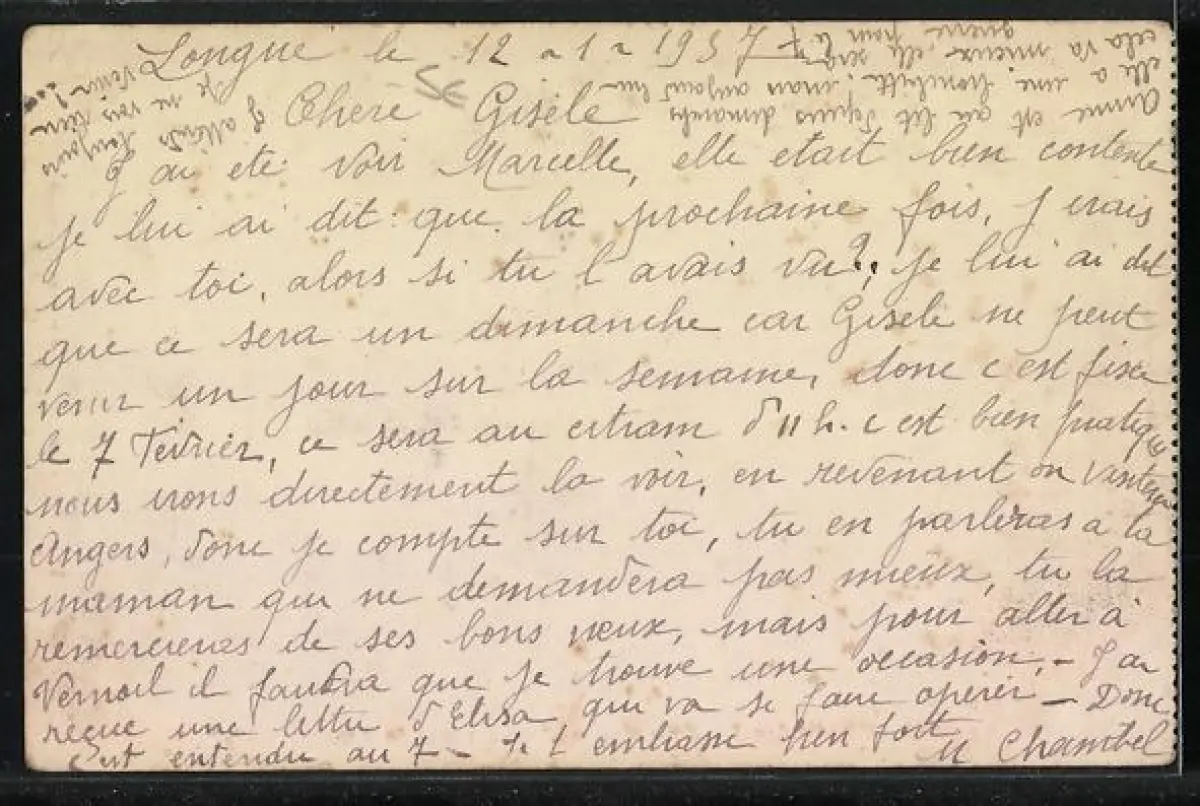 Longué le 12-1-1937
Chère Gisèle
J ai été voir Marcelle, elle etait bien contente
je lui ai dit que la prochaine fois, j irais
avec toi, alors si tu l avais vu?, je lui ai dit
que ce sera un dimanche car Gisèle ne peut
venir un jour sur la semaine, donc c est fixer
le 7 Février, ce sera au d 11 h. c est bien pratique
nous irons directement la voir, en revenant on visitera
Angers, donc je compte sur toi, tu en parleras a la
maman qui ne demandera pas mieux, tu la
remercieras de ses bons vœux, mais pour aller à
Vernoil il faudra que je trouve une occasion, - J ai
reçue une lettre d Elisa, qui va se faire opérer - Donc
c est entendu au 7 - Je t embrasse bien fort
M Chambel
Anne est au lit depuis dimanche
elle a une bronchite, mais aujourd hui
cela va mieux, elle sera
guérie pour le 7
J attends toujours
je ne vois rien
venir